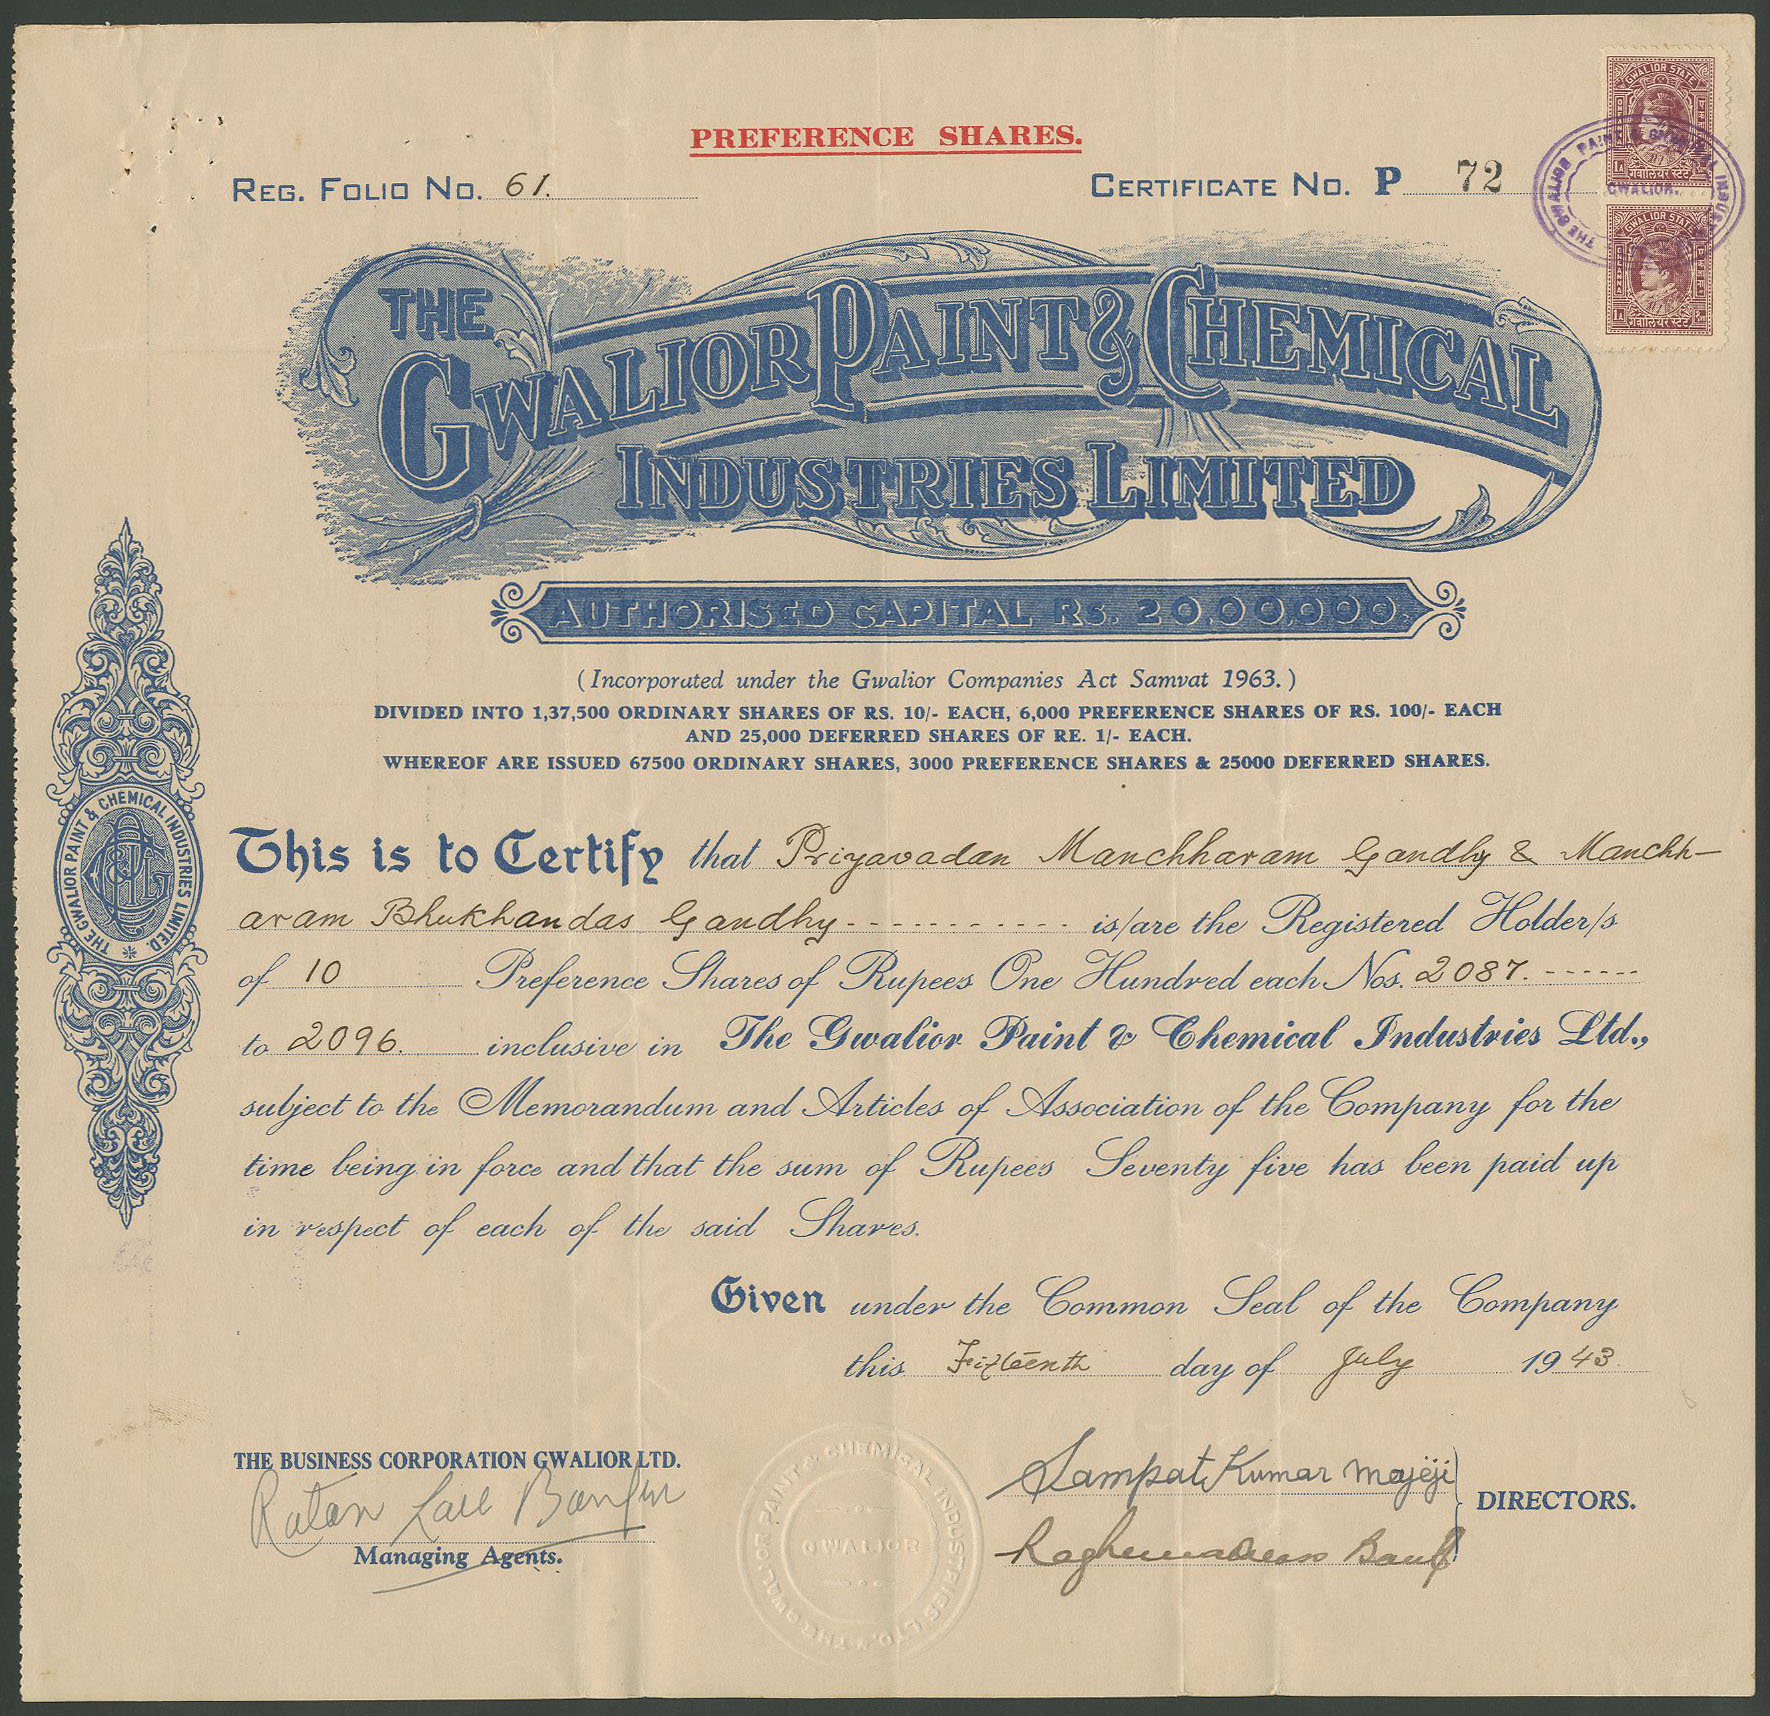 PREFERENCE SHARES.
REG. FOLIO NO. 61.
CERTIFICATE NO. P 72
GWALIOR STATE
ONE ANNA
1A
गवालियर स्टेट
GWALIOR STATE
ONE ANNA
1A
गवालियर स्टेट
GWALIOR.
THE GWALIOR PAINT & CHEMICAL
INDUSTRIES LIMITED
AUTHORISED CAPITAL RS. 20,00,000.
(Incorporated under the Gwalior Companies Act Samvat 1963.)
DIVIDED INTO 1,37,500 ORDINARY SHARES OF RS. 10/- EACH, 6,000 PREFERENCE SHARES OF RS. 100/- EACH
AND 25,000 DEFERRED SHARES OF RE. 1/- EACH.
WHEREOF ARE ISSUED 67500 ORDINARY SHARES, 3000 PREFERENCE SHARES & 25000 DEFERRED SHARES.
THE GWALIOR PAINT & CHEMICAL INDUSTRIES LIMITED.
This is to Certify that Priyavadan Manchharam Gandhy & Manchh-
aram Bhukhandas Gandhy is/are the Registered Holder/s
of 10 Preference Shares of Rupees One Hundred each Nos. 2087.
to 2096. inclusive in The Gwalior Paint & Chemical Industries Ltd.,
subject to the Memorandum and Articles of Association of the Company for the
time being in force and that the sum of Rupees Seventy five has been paid up
in respect of each of the said Shares.
Given under the Common Seal of the Company
this Fifteenth day of July 1943.
THE BUSINESS CORPORATION GWALIOR LTD.
Ratan Lall Bangur
Managing Agents.
THE GWALIOR PAINT & CHEMICAL INDUSTRIES LTD.
GWALIOR
Sampat Kumar
DIRECTORS.